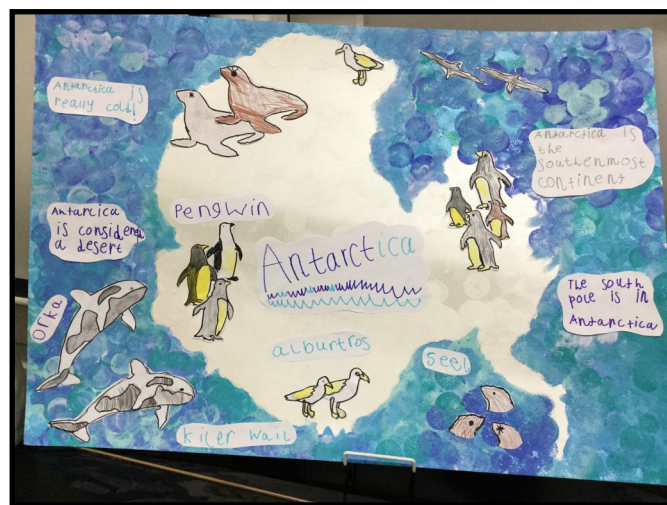 Antarctica is
really cold!
Antarctica is
the
southenmost
continent
Pengwin
Antarcica
is considered
a desert
Antarctica
The south
pole is in
Antarctica
Orka
alburtros
Seel
kiler wail